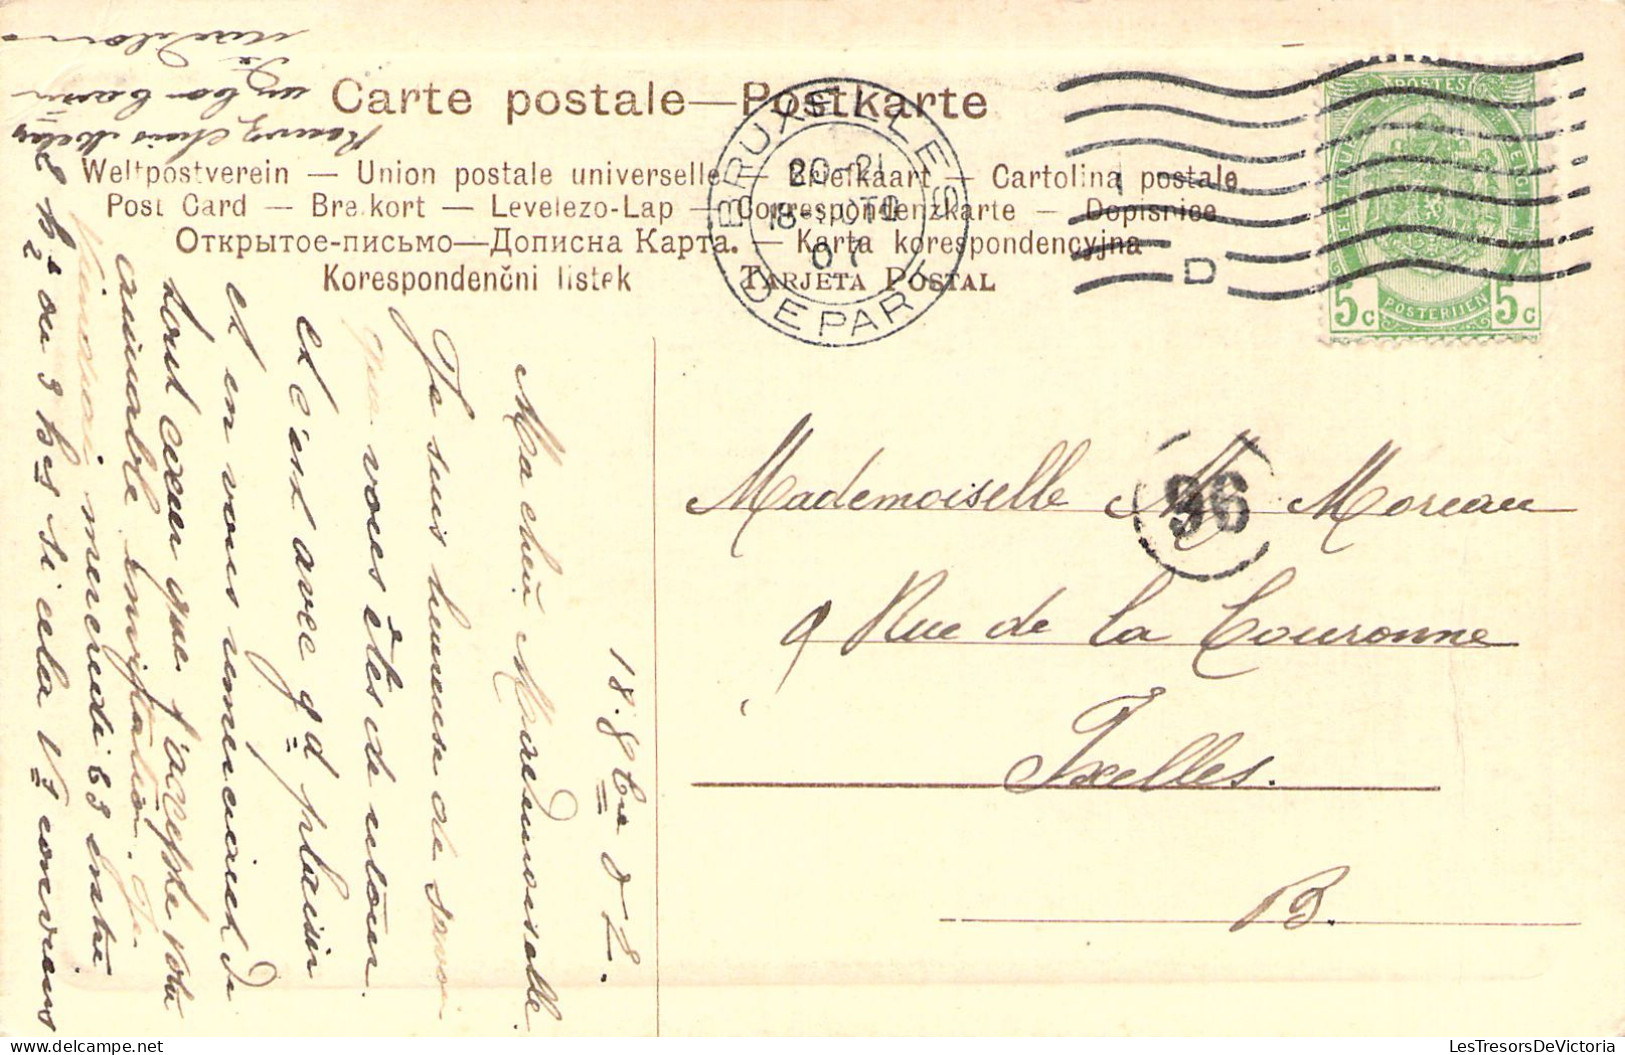 Carte postale—Postkarte
Weltpostverein — Union postale universelle — Briefkaart — Cartolina postale
Post Card — Brevkort — Levelezo-Lap — Correspondenzkarte — Dopisnice
Открытое-письмо—Дописна Карта. — Karta korespondencyjna
Korespondenčni listek TARJETA POSTAL
BRUXELLES
20-21
18-
07
DEPART
D
POSTES
5c POSTERIJEN 5c
96
Mademoiselle Moreau
9 Rue de la Couronne
Ixelles.
B.
18. 8bre 07.
Ma chère Mademoiselle
Je suis heureuse de savoir
que vous êtes de retour
et c'est avec gd plaisir
et en vous remerciant de
tout cœur que j'accepte votre
aimable invitation. Je
viendrai mercredi 23 entre
2 hs ou 3 hes si cela vs convient
Recevez chère